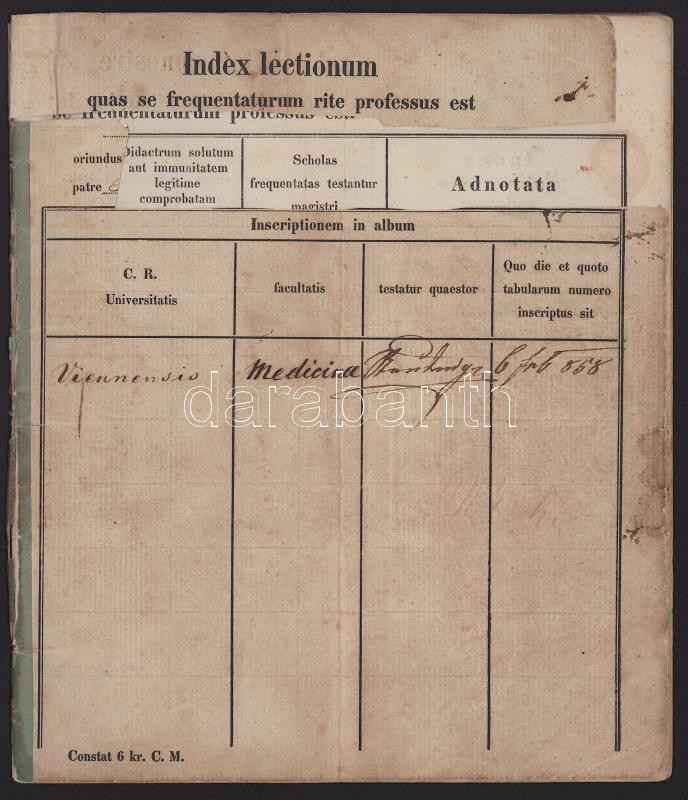 Index lectionum
quas se frequentaturum rite professus est
se frequentaturum professus est.
oriundus
patre
Didactrum solutum
aut immunitatem
legitime
comprobatam
Scholas
frequentatas testantur
magistri
Adnotata
Inscriptionem in album
C. R.
Universitatis
facultatis
testatur quaestor
Quo die et quoto
tabularum numero
inscriptus sit
Viennensis
Medicina
6 feb 858
darabanth
Constat 6 kr. C. M.